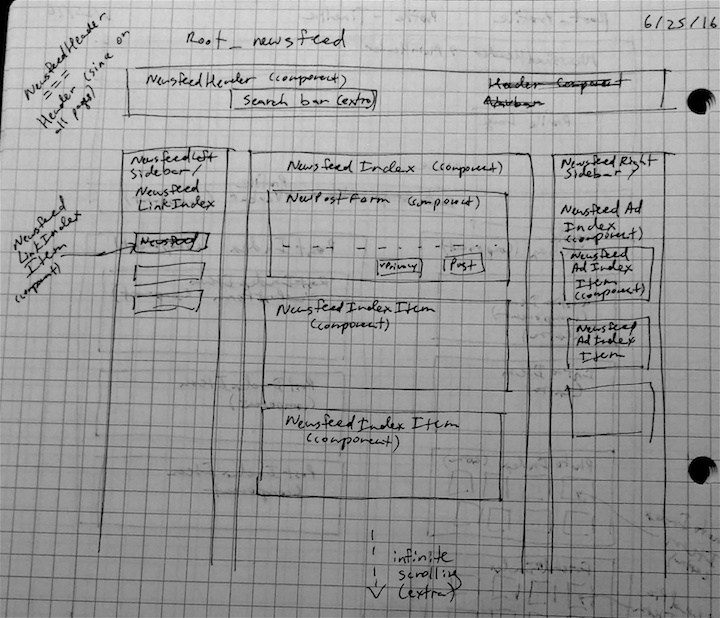 6/25/16
Root_newsfeed
NewsfeedHeader
===
Header (since on
all pages)
NewsfeedHeader (component)
Search bar (extra)
Header Component
Navbar
NewsfeedLeft
Sidebar/
Newsfeed
LinkIndex
Newsfeed
LinkIndex
Item
(component)
Newsfeed
NewsfeedIndex (component)
NewPostForm (component)
vPrivacy
Post
NewsfeedIndexItem
(component)
NewsfeedIndexItem
(component)
infinite
scrolling
(extra)
NewsfeedRight
Sidebar/
Newsfeed Ad
Index
(component)
Newsfeed
AdIndex
Item
(component)
Newsfeed
AdIndex
Item